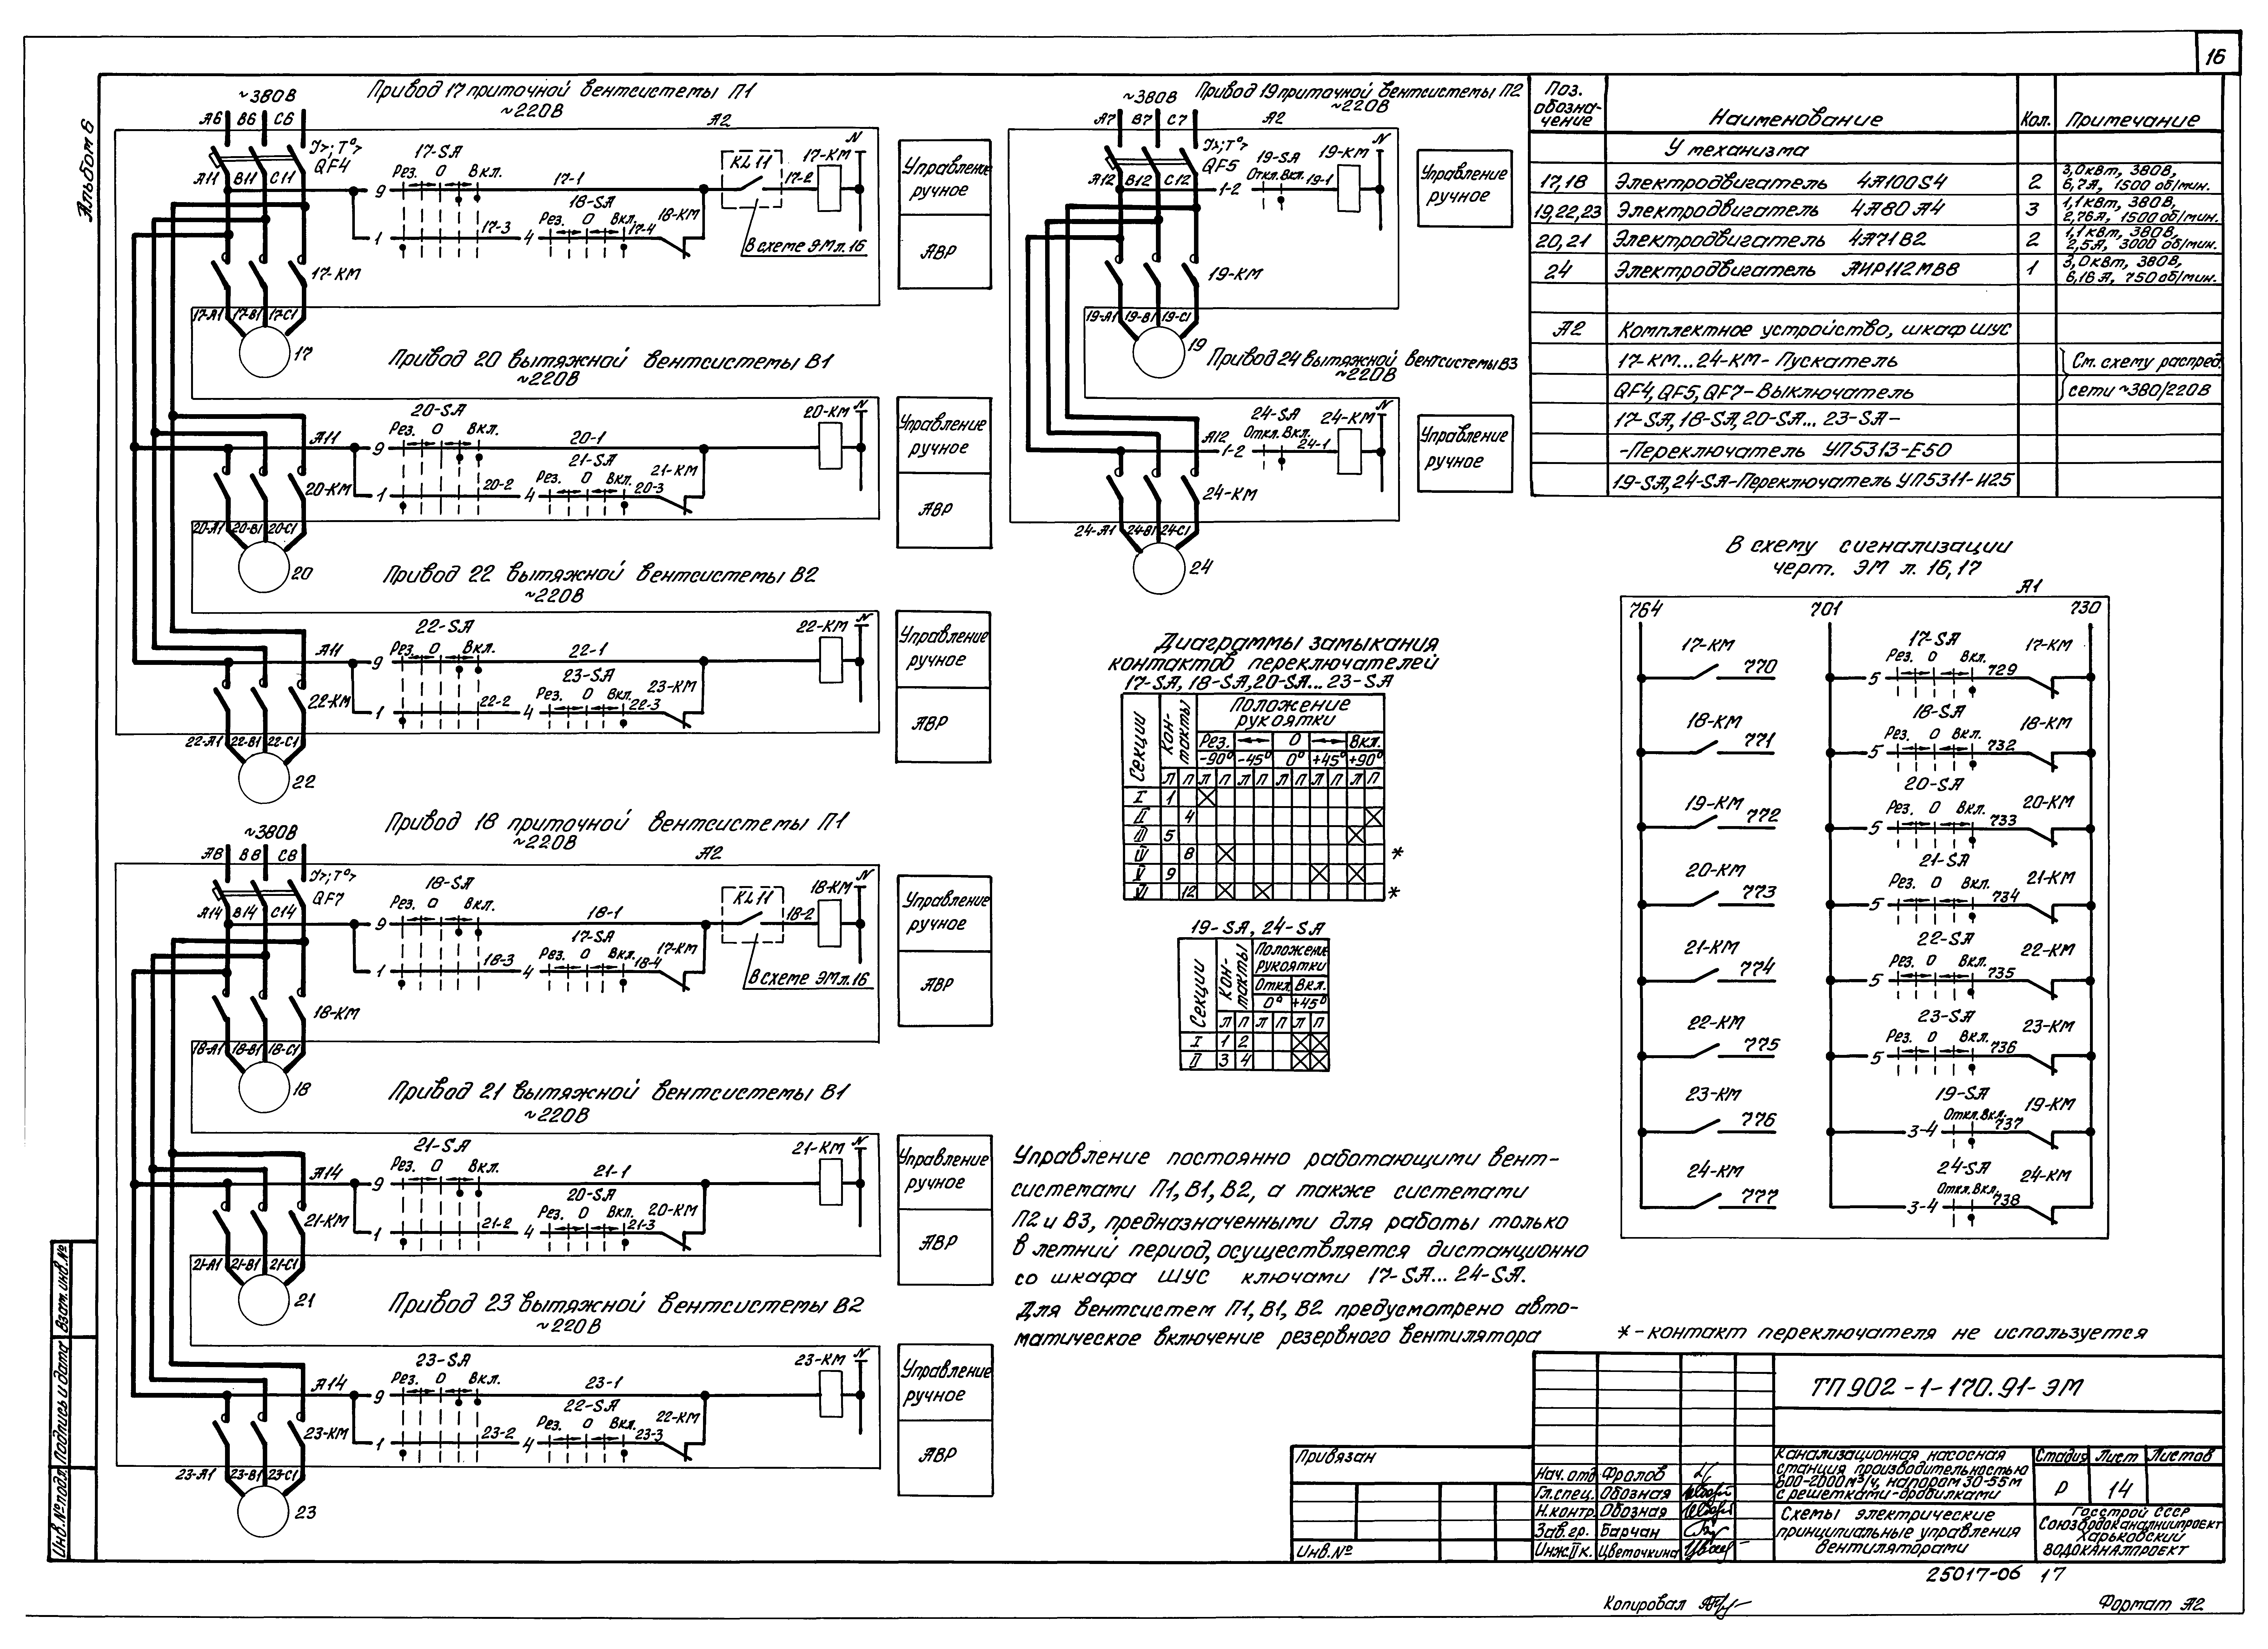 16
Альбом 6
Привод 17 приточной вентсистемы П1
~380В
~220В
А6 В6 С6
А2
I>; T°>
QF4
17-SА
КL11
17-КМ
N
А11 В11 С11
9
Рез. 0 Вкл.
17-1
17-2
18-SА
18-КМ
1
17-3
4
Рез. 0 Вкл.
17-4
В схеме ЭМ л.16
17-КМ
17-А1 17-В1 17-С1
17
Управление
ручное
АВР
Привод 20 вытяжной вентсистемы В1
~220В
20-SА
20-КМ
N
А11
9
Рез. 0 Вкл.
20-1
21-SА
21-КМ
1
20-2
4
Рез. 0 Вкл.
20-3
20-КМ
20-А1 20-В1 20-С1
20
Управление
ручное
АВР
Привод 22 вытяжной вентсистемы В2
~220В
22-SА
22-КМ
N
А11
9
Рез. 0 Вкл.
22-1
23-SА
23-КМ
1
22-2
4
Рез. 0 Вкл.
22-3
22-КМ
22-А1 22-В1 22-С1
22
Управление
ручное
АВР
Привод 18 приточной вентсистемы П1
~380В
~220В
А8 В8 С8
А2
I>; T°>
QF7
18-SА
КL11
18-КМ
N
А14 В14 С14
9
Рез. 0 Вкл.
18-1
18-2
17-SА
17-КМ
1
18-3
4
Рез. 0 Вкл.
18-4
В схеме ЭМ л.16
18-КМ
18-А1 18-В1 18-С1
18
Управление
ручное
АВР
Привод 21 вытяжной вентсистемы В1
~220В
21-SА
21-КМ
N
А14
9
Рез. 0 Вкл.
21-1
20-SА
20-КМ
1
21-2
4
Рез. 0 Вкл.
21-3
21-КМ
21-А1 21-В1 21-С1
21
Управление
ручное
АВР
Привод 23 вытяжной вентсистемы В2
~220В
23-SА
23-КМ
N
А14
9
Рез. 0 Вкл.
23-1
22-SА
22-КМ
1
23-2
4
Рез. 0 Вкл.
23-3
23-КМ
23-А1 23-В1 23-С1
23
Управление
ручное
АВР
Привод 19 приточной вентсистемы П2
~380В
~220В
А7 В7 С7
А2
I>; T°>
QF5
19-SА
19-КМ
N
А12 В12 С12
1-2
Откл. Вкл.
19-1
19-КМ
19-А1 19-В1 19-С1
19
Управление
ручное
Привод 24 вытяжной вентсистемы В3
~220В
24-SА
24-КМ
N
А12
1-2
Откл. Вкл.
24-1
24-КМ
24-А1 24-В1 24-С1
24
Управление
ручное
Диаграммы замыкания
контактов переключателей
17-SА, 18-SА, 20-SА... 23-SА
Секции
Кон-
такты
Положение
рукоятки
Рез. 0 Вкл.
-90° -45° 0° +45° +90°
Л П Л П Л П Л П Л П Л П
I 1
II 4
III 5
IV 8 *
V 9
VI 12 *
19-SА, 24-SА
Секции
Кон-
такты
Положение
рукоятки
Откл. Вкл.
0° +45°
Л П Л П Л П
I 1 2
II 3 4
Управление постоянно работающими вент-
системами П1, В1, В2, а также системами
П2 и В3, предназначенными для работы только
в летний период, осуществляется дистанционно
со шкафа ШУС ключами 17-SА... 24-SА.
Для вентсистем П1, В1, В2 предусмотрено авто-
матическое включение резервного вентилятора
Поз. обозна- чение
Наименование
Кол.
Примечание
У механизма
17,18 Электродвигатель 4А100S4 2 3,0кВт, 380В, 6,7А, 1500 об/мин.
19,22,23 Электродвигатель 4А80А4 3 1,1кВт, 380В, 2,76А, 1500 об/мин.
20,21 Электродвигатель 4А71В2 2 1,1кВт, 380В, 2,5А, 3000 об/мин.
24 Электродвигатель АИР112МВ8 1 3,0кВт, 380В, 6,16А, 750 об/мин.
А2 Комплектное устройство, шкаф ШУС
17-КМ...24-КМ- Пускатель См. схему распред.
QF4, QF5, QF7-Выключатель сети ~380/220В
17-SА, 18-SА, 20-SА... 23-SА-
-Переключатель УП5313-Е50
19-SА, 24-SА-Переключатель УП5311-И25
В схему сигнализации
черт. ЭМ л. 16,17
А1
764 701 730
17-КМ 770
18-КМ 771
19-КМ 772
20-КМ 773
21-КМ 774
22-КМ 775
23-КМ 776
24-КМ 777
17-SА 17-КМ
5 Рез. 0 Вкл. 729
18-SА 18-КМ
5 Рез. 0 Вкл. 732
20-SА 20-КМ
5 Рез. 0 Вкл. 733
21-SА 21-КМ
5 Рез. 0 Вкл. 734
22-SА 22-КМ
5 Рез 0 Вкл. 735
23-SА 23-КМ
5 Рез. 0 Вкл. 736
19-SА 19-КМ
3-4 Откл. Вкл. 737
24-SА 24-КМ
3-4 Откл. Вкл. 738
* - контакт переключателя не используется
ТП 902-1-170.91-ЭМ
Привязан
Инв.№
Нач. отд. Фролов
Гл.спец. Обозная
Н.контр. Обозная
Зав.гр. Барчан
Инж.II к. Цветочкина
Канализационная насосная
станция производительностью
600-2000 м³/ч, напором 30-55м
с решетками-дробилками
Стадия Лист Листов
Р 14
Схемы электрические
принципиальные управления
вентиляторами
Госстрой СССР
Союзводоканалниипроект
Харьковский
Водоканалпроект
25017-06 17
Копировал
Формат А2
Инв.№ подл. Подпись и дата Взам. инв.№